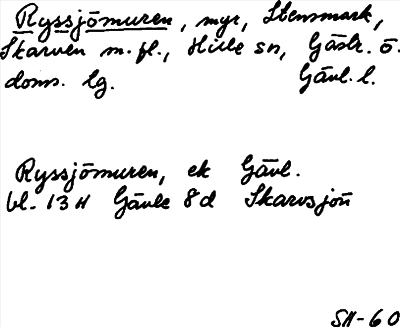 Ryssjömuren, myr, Stensmark,
Skarven m.fl., Hille sn, Gästr. ö.
doms. lg. Gävl. l.
Ryssjömuren, ek Gävl.
bl. 13 H Gävle 8d Skarvsjön
SH-60